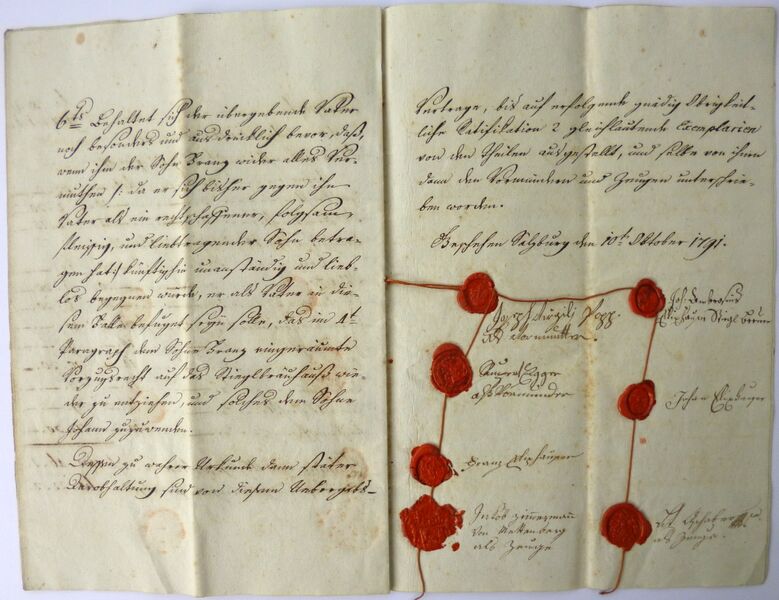 6tens Behaltet sich der übergebende Vater
noch besonders und ausdrücklich bevor, daß,
wenn ihm der Sohn Franz wider alles Ver-
muthen /: da er sich bisher gegen ihn
Vater als ein rechtschaffener, folgsam,
fleissig, und liebtragender Sohn betra-
gen hat :/ künftighin unanständig und lieb-
los begegnen würde, er als Vater in die-
sem Falle befugt seyn solle, das im 4t.
Paragraph dem Sohne Franz eingeräumte
Vorzugsrecht auf das Stieglbräuhauß wie-
der zu entziehen, und solches dem Sohne
Johann zuzuwenden.
Dessen zu wahrer Urkunde dann stäter
Darobhaltung sind von diesem Uebergabs-
Vertrage, bis auf erfolgende gnädig Obrigkeit-
liche Ratifikation 2 gleichlautende Exemplarien
von den Theilen ausgestellt, und selbe von ihnen
dann den Vormündern und Zeugen unterschrie-
ben worden.
Geschehen Salzburg den 10t. Oktober 1791.
Joseph Virgili Popp
als
Joh. Ambrosius
Elixhauser Stiegl
als Vormunder
Johan Elixhauser
Franz Elixhauser
Jakob Zimmermann
von
als Zeuge
als Zeuge